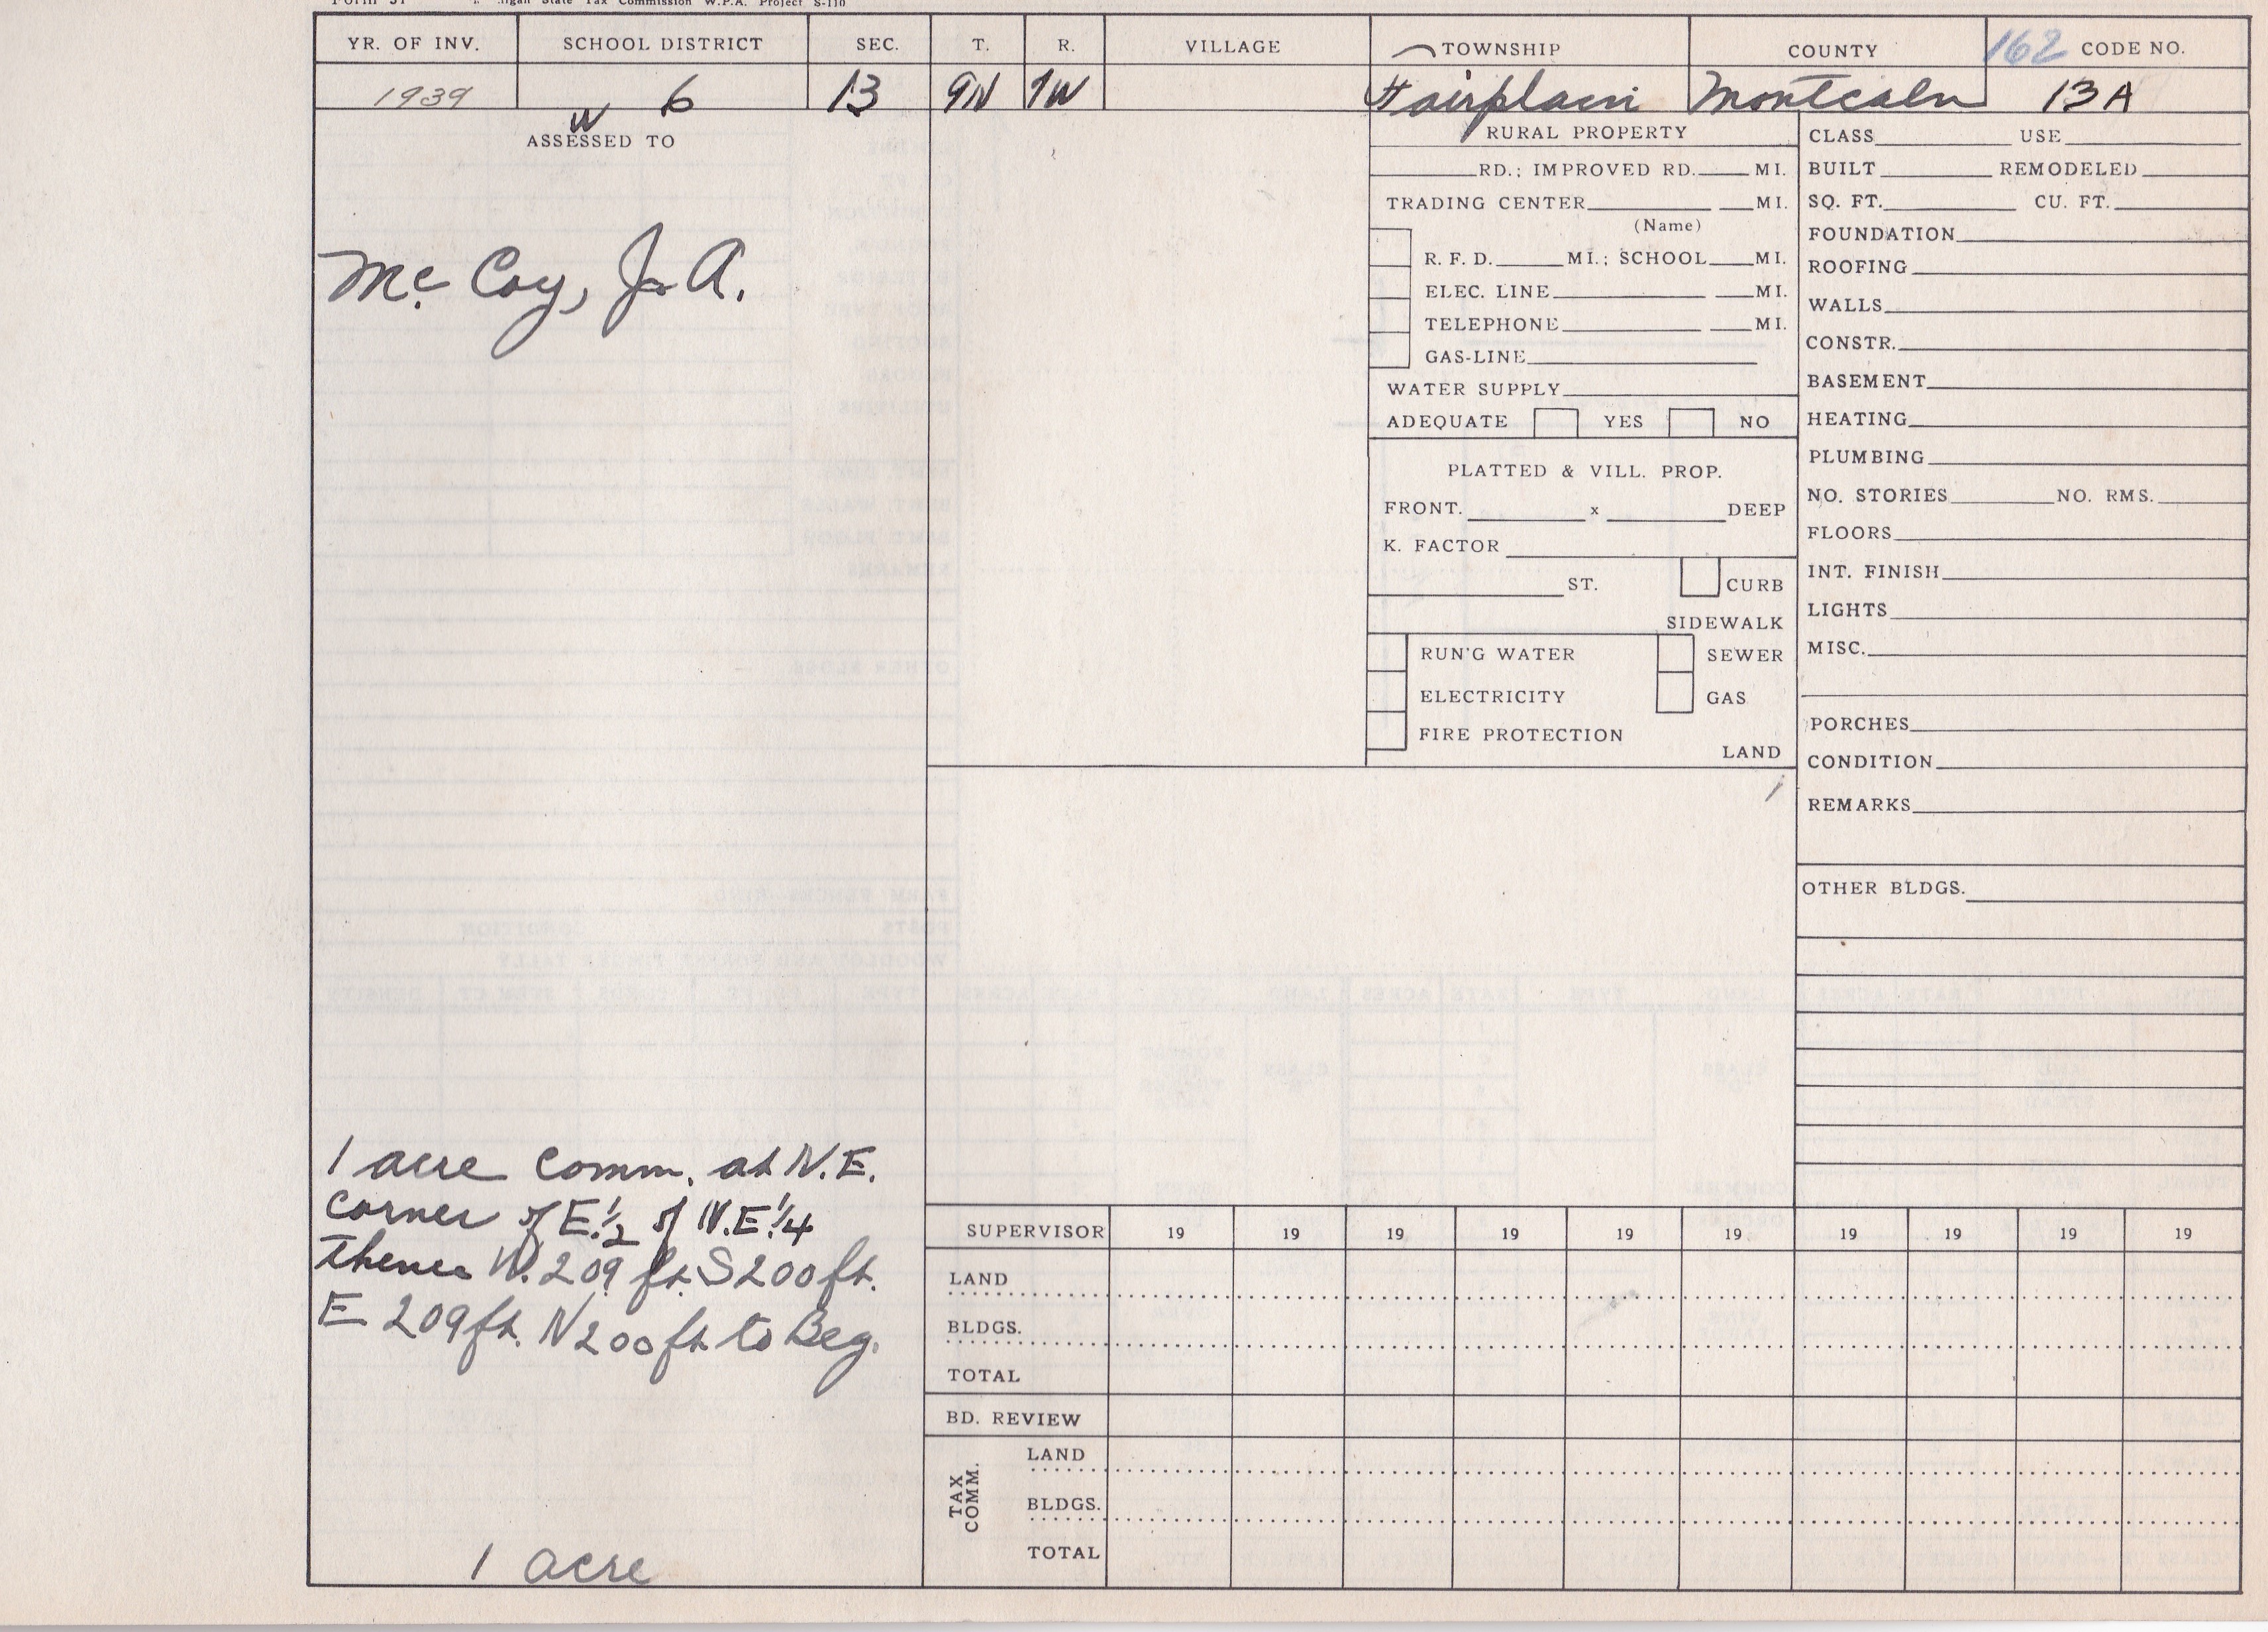 Form 31 Michigan State Tax Commission W.P.A. Project S-110
YR. OF INV. SCHOOL DISTRICT SEC. T. R. VILLAGE TOWNSHIP COUNTY 162 CODE NO.
1939 6 13 9N 7W Fairplain Montcalm 13A
W
ASSESSED TO
McCoy, J. A.
1 acre Comm. at N.E.
corner of E.1/2 of N.E.1/4
thence W. 209 ft. S 200 ft.
E 209 ft. N 200 ft to Beg.
1 acre
RURAL PROPERTY
RD.; IMPROVED RD. MI.
TRADING CENTER MI.
(Name)
R. F. D. MI.; SCHOOL MI.
ELEC. LINE MI.
TELEPHONE MI.
GAS-LINE
WATER SUPPLY
ADEQUATE YES NO
PLATTED & VILL. PROP.
FRONT. x DEEP
K. FACTOR
ST. CURB
SIDEWALK
RUN'G WATER SEWER
ELECTRICITY GAS
FIRE PROTECTION
LAND
1
CLASS USE
BUILT REMODELED
SQ. FT. CU. FT.
FOUNDATION
ROOFING
WALLS
CONSTR.
BASEMENT
HEATING
PLUMBING
NO. STORIES NO. RMS.
FLOORS
INT. FINISH
LIGHTS
MISC.
PORCHES
CONDITION
REMARKS
OTHER BLDGS.
SUPERVISOR 19 19 19 19 19 19 19 19 19 19
LAND
BLDGS.
TOTAL
BD. REVIEW
TAX COMM.
LAND
BLDGS.
TOTAL